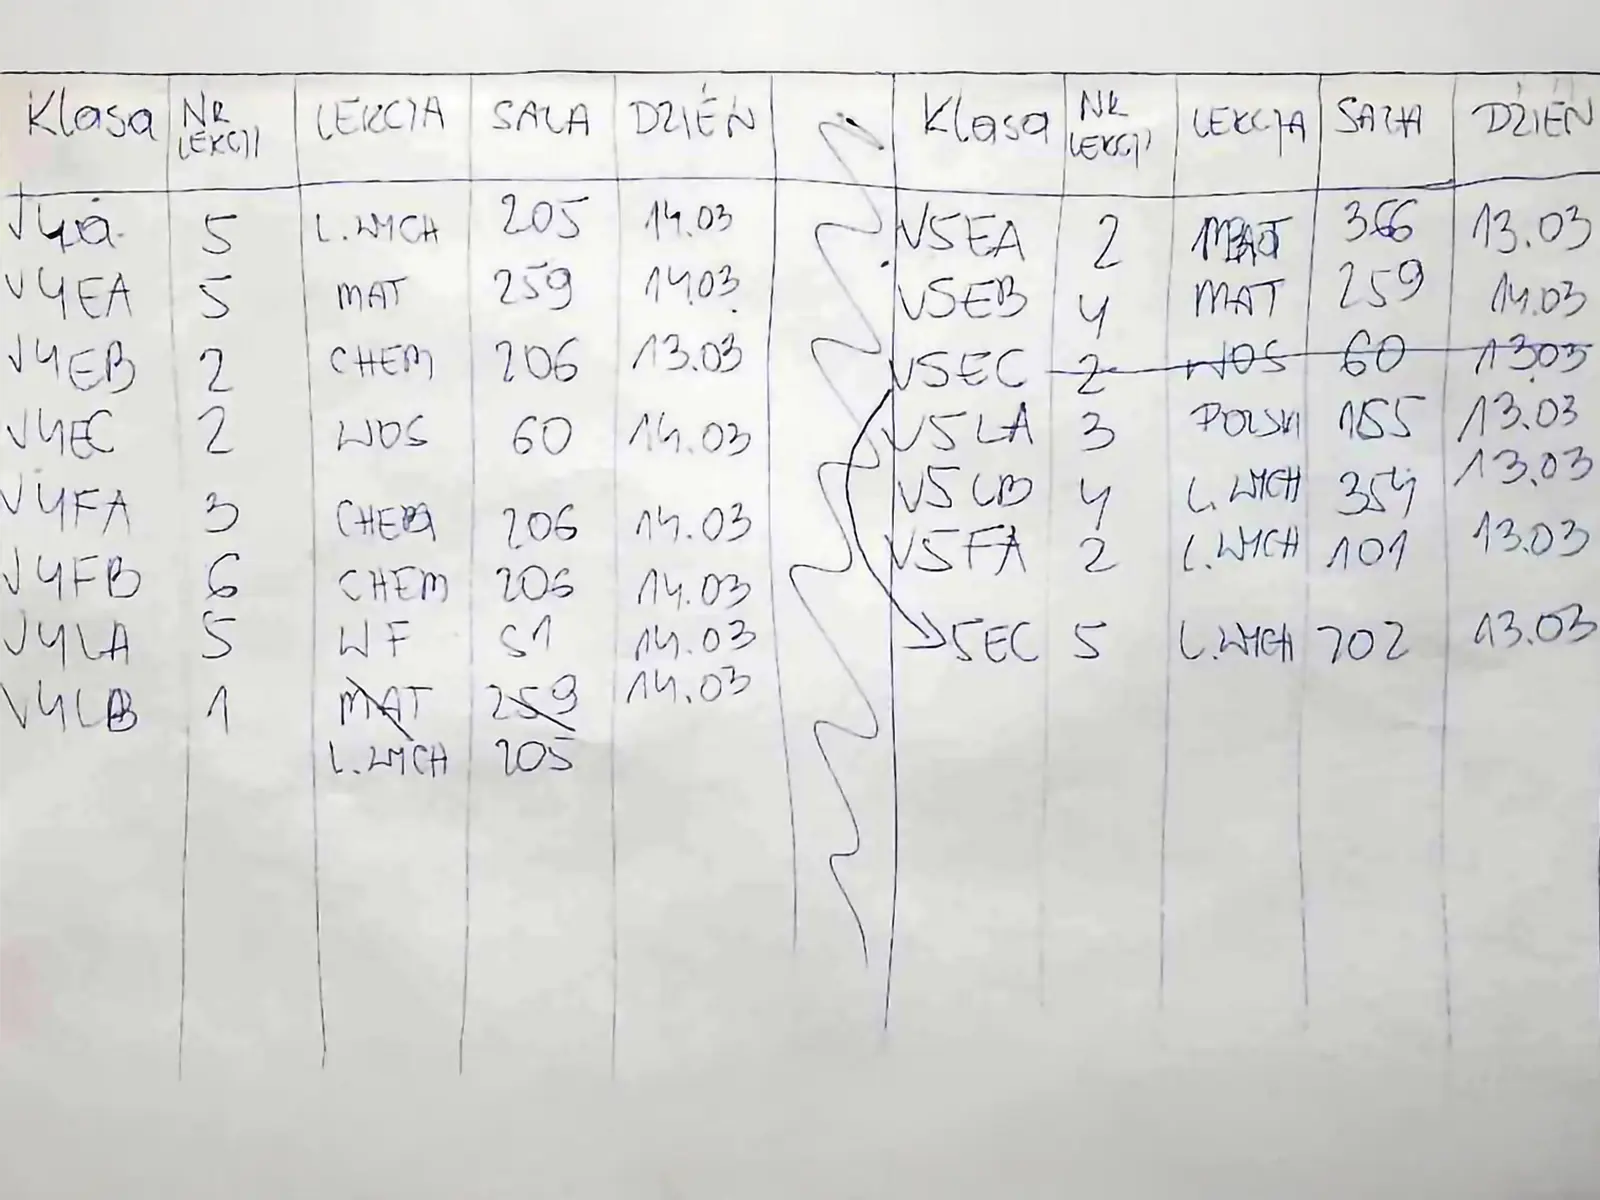 Klasa NR LEKCJI LEKCJA SALA DZIEŃ
√4a 5 L.WYCH 205 14.03
√4EA 5 MAT 259 14.03
√4EB 2 CHEM 206 13.03
√4EC 2 WOS 60 14.03
√4FA 3 CHEM 206 14.03
√4FB 6 CHEM 206 14.03
√4LA 5 WF S1 14.03
√4LB 1 MAT 259 14.03
L.WYCH 205
Klasa NR LEKCJI LEKCJA SALA DZIEŃ
√5EA 2 MAT 366 13.03
√5EB 4 MAT 259 14.03
√5EC 2 WOS 60 13.03
√5LA 3 POLSKI 155 13.03
√5LB 4 L.WYCH 354 13.03
√5FA 2 L.WYCH 101 13.03
5EC 5 L.WYCH 202 13.03